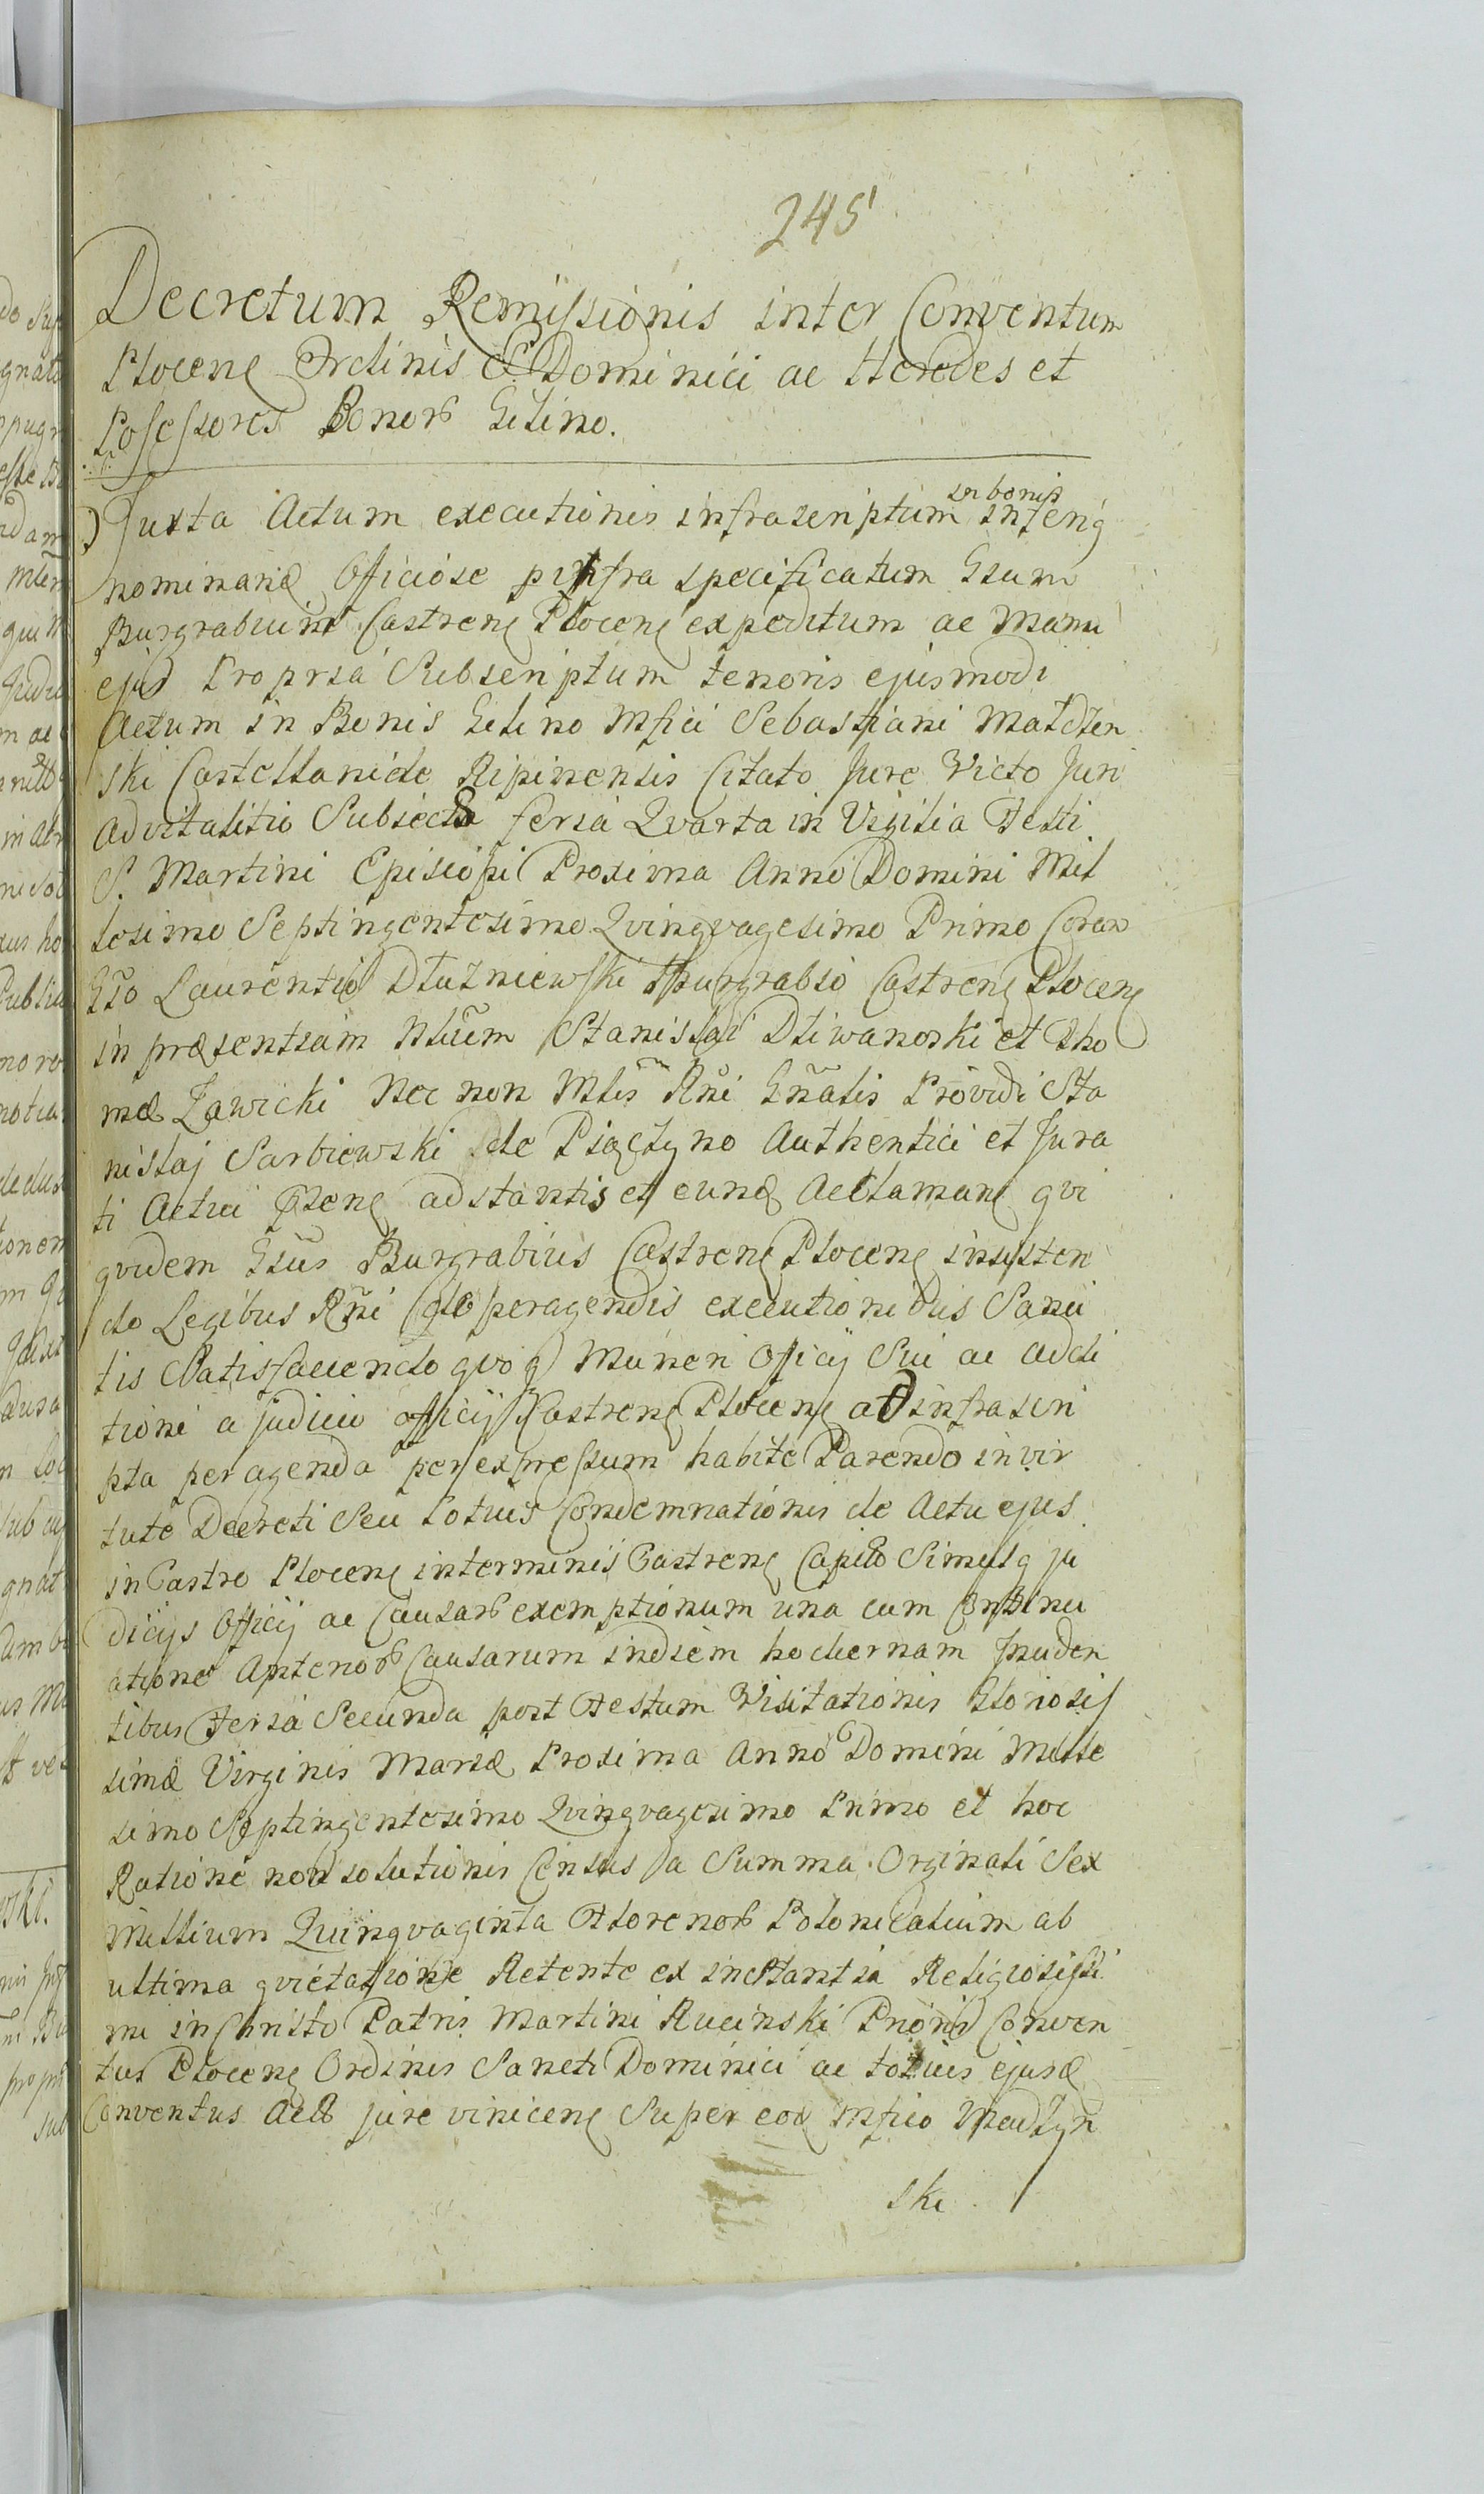 245
Decretum Remissionis inter Conventum
Plocens Ordinis S. Dominici ac Heredes et
Possessores Bonor Gilino.
Juxta Actum executionis infrascriptum in bonis inferig
nominand Officiose p infra specificatum Gsum
Burgrabium Castrens Plocens expeditum ac Manu
ejus Propria Subscriptum tenoris ejusmodi
Actum in Bonis Gilino Mfici Sebastiani
ski Castellanide Ripinensis Citato Jure Victo Juri
advitalitio Subjecto feria Qvarta in Vigilia Festi
S. Martini Episcopi Proxima Anno Domini Mil
lesimo Septingentesimo Qvinqvagesimo Primo Coram
Gso Laurentio Dłuzniewski Burgrabio Castrens Plocens
in præsentiam Nlium Stanislai Dziwanoski et Tho
mæ Zawicki Nec non Mlis Rni Gnalis Providi Sta
nislaj Sarbiewski de Authentici et Jura
ti Actui adstantis et eund Acclamans qvi
qvidem Gsus Burgrabius Castrens Plocens insisten
do Legibus Rni de peragendis executionibus Sanci
tis Satisfaciendo qvoq Muneri Officij Sui ac addi
tioni a judicio officij Castrens Plocens ad infrascri
pta peragenda per expressum habite Parendo in vir
tute Decreti Seu Lotius Condemnationis de Actu ejus
in Castro Plocens in terminis Castrens Capito Simulq ju
dicijs Officij ac Causar exemptionum una cum Continu
atione Anterior Causarum in diem hodiernam Inciden
tibus Feria Secunda post Festum Visitationis Gloriosis
simæ Virginis Mariæ Proxima Anno Domini Mille
simo Septingentesimo Qvinqvagesimo Primo et hoc
Ratione non solutionis Census a Summa Orginali Sex
millium Quinqvaginta Florenor Polonicalium ab
ultima qvietatione Retente ex instantia Religiosissi
mi in Christo Patris Martini Rucinski Prioris Conven
tus Plocens Ordinis Sancti Dominici ac totius ejusd
Conventus jure vincens Super eod Mfico
ski